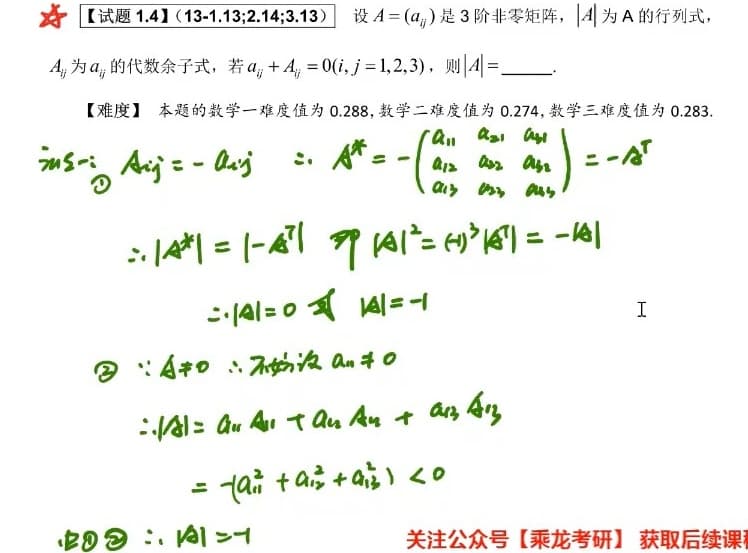 【试题 1.4】(13-1.13;2.14;3.13) 设 A=(a_{ij}) 是 3 阶非零矩阵, |A| 为 A 的行列式,
A_{ij} 为 a_{ij} 的代数余子式, 若 a_{ij}+A_{ij}=0(i,j=1,2,3), 则 |A|=_____.
【难度】 本题的数学一难度值为 0.288, 数学二难度值为 0.274, 数学三难度值为 0.283.
① A_{ij} = -a_{ij} ∴ A* = -(a_{11} a_{21} a_{31}
a_{12} a_{22} a_{32}
a_{13} a_{23} a_{33}) = -A^T
∴ |A*| = |-A^T| 即 |A|^2 = (-1)^3 |A^T| = -|A|
∴ |A| = 0 或 |A| = -1
② ∵ A≠0 ∴ 不妨设 a_{11} ≠ 0
∴ |A| = a_{11} A_{11} + a_{12} A_{12} + a_{13} A_{13}
= -(a_{11}^2 + a_{12}^2 + a_{13}^2) < 0
由①② ∴ |A| = -1
关注公众号【乘龙考研】 获取后续课